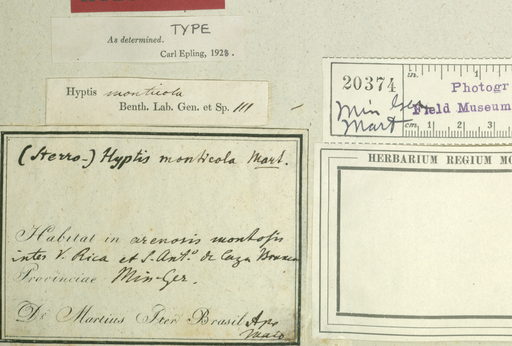 TYPE
As determined.
Carl Epling, 1928.
Hyptis monticola
Benth. Lab. Gen. et Sp. 111
20374
in.
Photogr
Min
Field Museum
Mart
cm. 1 2 3
(Sterro-) Hyptis monticola Mart.
Habitat in arenosis montosis
inter V. Rica et S. Ant.º de
Provinciae Min-Ger.
De Martius Iter Brasil
HERBARIUM REGIUM MO